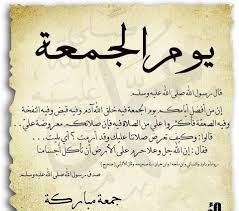 يوم الجمعة
قال رسول الله صلى الله عليه وسلم
إن من أفضل أيامكم يوم الجمعة فيه خلق الله آدم وفيه قبض وفيه النفخة
وفيه الصعقة فأكثروا علي من الصلاة فيه فإن صلاتكم معروضة علي
قالوا: وكيف تعرض صلاتنا عليك وقد أرمت ؟ أي بليت
فقال : إن الله جل وعلا حرم على الأرض أن تأكل أجسامنا
صدق رسول الله صلى الله عليه وسلم
جمعة مباركة